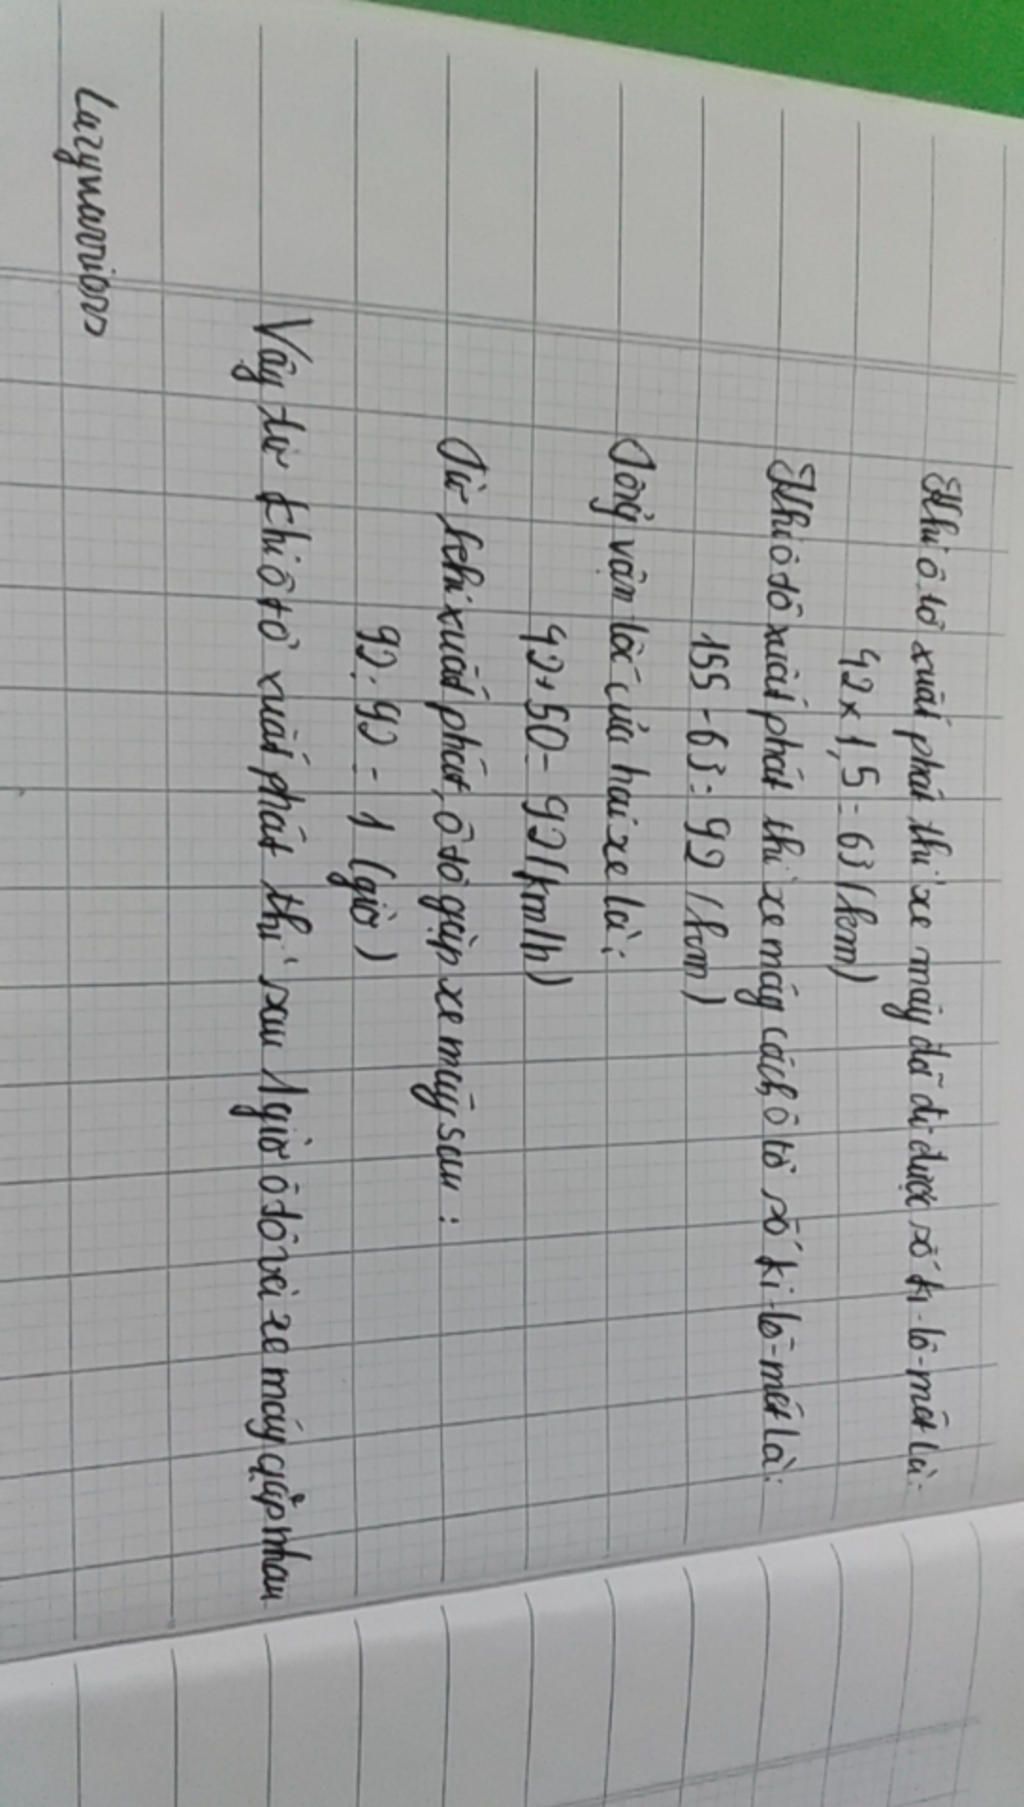 Khi ô tô xuất phát thì xe máy đã đi được số ki-lô-mét là:
42 x 1,5 = 63 (km)
Khi ô tô xuất phát thì xe máy cách ô tô số ki-lô-mét là:
155 - 63 = 92 (km)
Tổng vận tốc của hai xe là:
42 + 50 = 92 (km/h)
Từ khi xuất phát, ô tô gặp xe máy sau:
92 : 92 = 1 (giờ)
Vậy từ khi ô tô xuất phát thì sau 1 giờ ô tô và xe máy gặp nhau
Lazywarriors